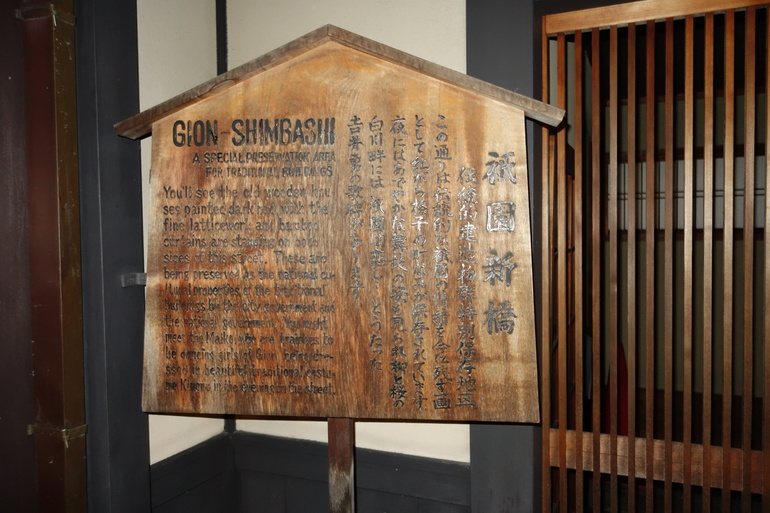 GION-SHIMBASHI
A SPECIAL PRESERVATION AREA
FOR TRADITIONAL BUILDINGS
You'll see the old wooden hou-
ses painted dark red with the
fine latticework and bamboo
curtains are standing on both
sides of this street. These are
being preserved as the national cu-
ltural properties of the traditional
buildings by the city government and
the national government. You might
meet the Maiko, who are trainees to
be dancing girls of Gion being dre-
ssed in beautiful traditional costu-
me Kimono in the evening on this street.
祇園新橋
伝統的建造物群特別保存地区
この通りは伝統的な祇園の面影を今に残す一画
として紅がら格子の町なみが保存されています
夜にはあでやかな舞妓の姿も見られ柳と桜の
白川畔には 祇園恋し とうたった
吉井勇の歌碑があります